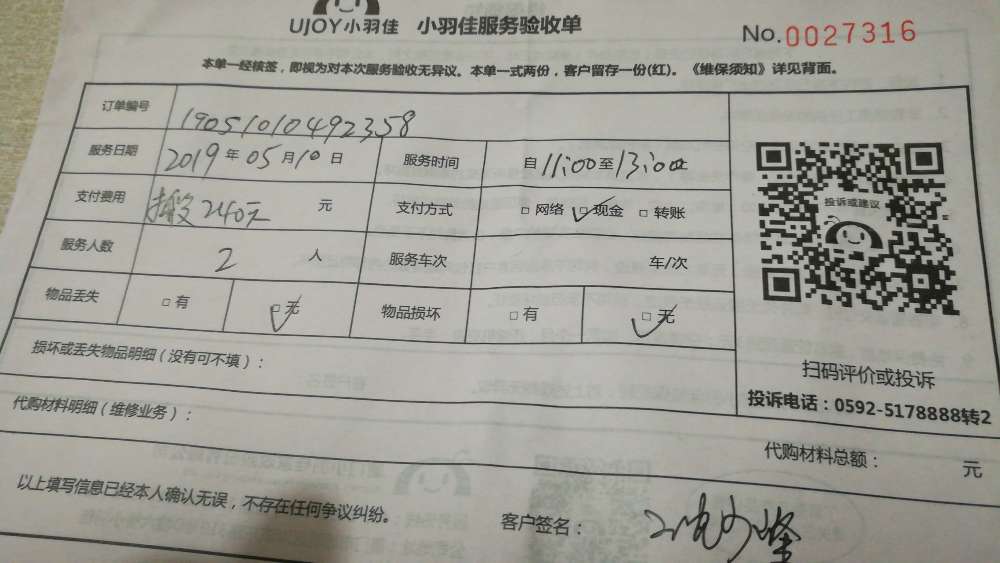 UJOY小羽佳 小羽佳服务验收单 No.0027316
本单一经核签，即视为对本次服务验收无异议。本单一式两份，客户留存一份(红)。《维保须知》详见背面。
订单编号 19051010492358
服务日期 2019年05月10日 服务时间 自11:00至13:00止
支付费用 搬 240元 元 支付方式 □网络 □现金 □转账
服务人数 2 人 服务车次 车/次
物品丢失 □有 □无 物品损坏 □有 □无
损坏或丢失物品明细（没有可不填）：
代购材料明细（维修业务）：
投诉或建议
扫码评价或投诉
投诉电话：0592-5178888转2
代购材料总额： 元
以上填写信息已经本人确认无误，不存在任何争议纠纷。
客户签名：